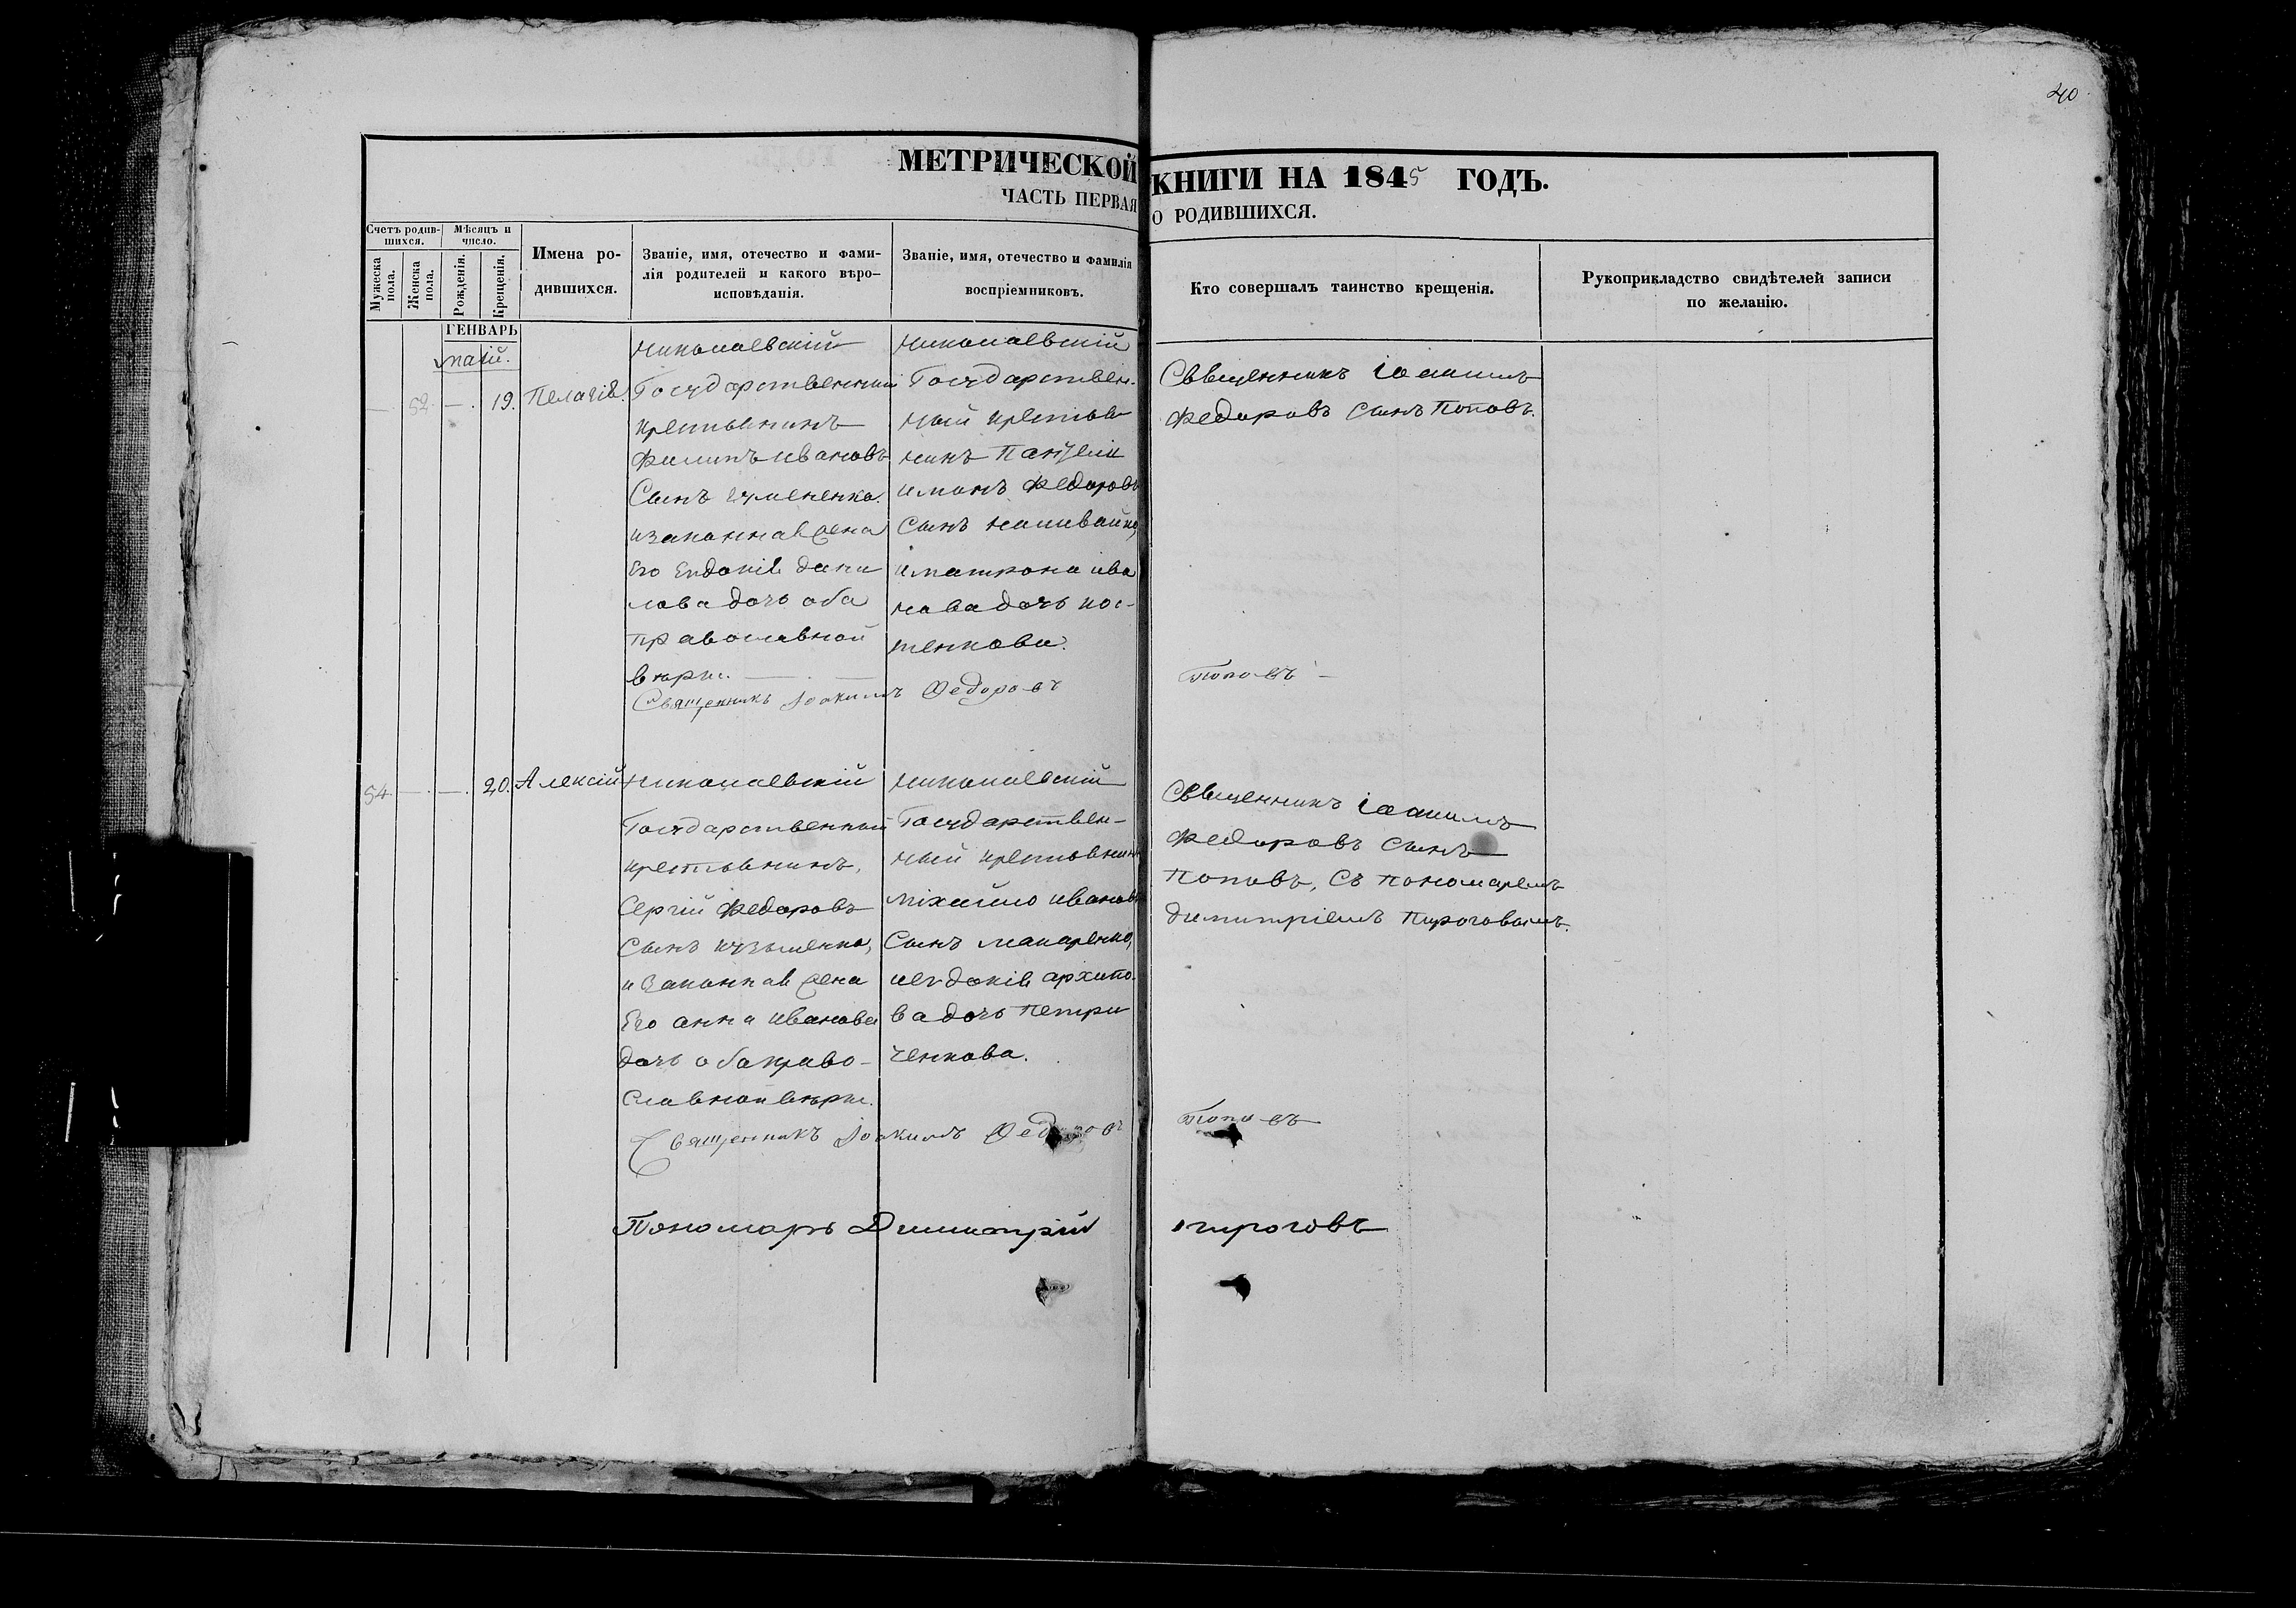 40
МЕТРИЧЕСКОЙ КНИГИ НА 1845 ГОДЪ.
ЧАСТЬ ПЕРВАЯ О РОДИВШИХСЯ.
Счетъ родив-
шихся.
Мѣсяцъ и
число.
Мужеска
пола.
Женска
пола.
Рожденія.
Крещенія.
Имена ро-
дившихся.
Званіе, имя, отечество и фами-
лія родителей и какого вѣро-
исповѣданія.
Званіе, имя, отечество и фамилія
воспріемниковъ.
Кто совершалъ таинство крещенія.
Рукоприкладство свидѣтелей записи
по желанію.
ГЕНВАРЬ
маій.
— 52. — 19. Пелагія.
Николаевскій
Государственный
крестьянинъ
Филипъ Ивановъ
Сынъ
изаконная жена
Его Евдокія дани
лова дочь оба
православной
вѣры.
Николаевскій
Государствен-
ный крестья
нинъ Пантели
имонъ Федоровъ
Сынъ наливайко,
иматрона ива
нова дочь кос-
тенкова.
Священникъ Іоакимъ
Федоровъ Сынъ Поповъ.
Священникъ Іоакимъ Федоровъ Поповъ
54. — — 20. Алексій
Николаевскій
Государственный
крестьянинъ,
Сергій Федоровъ
Сынъ кузьменко,
и Законная жена
Его анна Иванова
дочь оба право-
славной вѣры.
Николаевскій
Государствен-
ный крестьянинъ
Міхайло Ивановъ
Сынъ макаренко,
иевдокія архипо
ва дочь Петри
ченкова.
Священникъ Іоакимъ
Федоровъ Сынъ
Поповъ, Съ пономаремъ
димитріемъ Пироговымъ.
Священникъ Іоакимъ Федоровъ Поповъ
Пономарь Димитрій Пироговъ